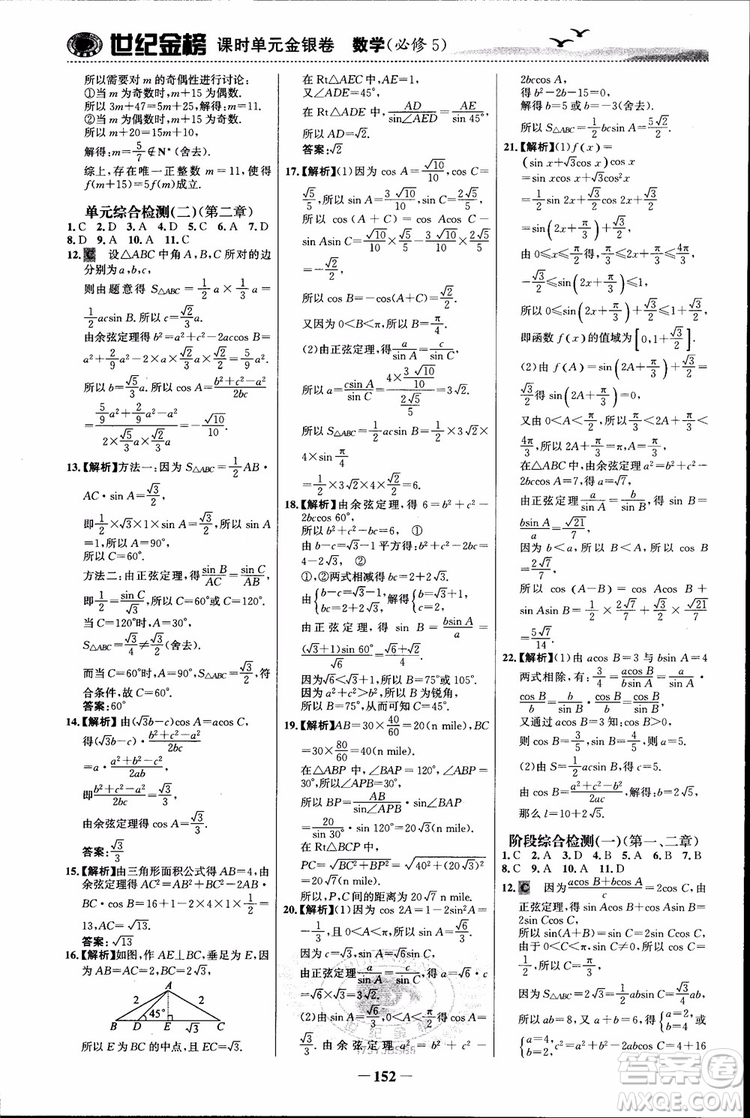 世纪金榜 课时单元金银卷 数学(必修5)
所以需要对 m 的奇偶性进行讨论:
①当 m 为奇数时,m+15 为偶数.
所以 3m+47=5(m+15),m=11.
②当 m 为偶数时,m+15 为奇数.
所以 m+20=15m+10,
解得:m=5/7∉N*(舍去).
综上,存在唯一正整数 m=11,使得
f(m+15)=5f(m)成立.
单元综合检测(二)(第二章)
1.C 2.D 3.A 4.D 5.C 6.A 7.D
8.D 9.A 10.A 11.C
12.C 设△ABC 中角 A,B,C 所对的边
分别为 a,b,c,
则由题意得 S△ABC=1/2 a×1/3 a=
1/2 acsin B.所以 c=√2/3 a.
由余弦定理得 b²=a²+c²-2accos B=
a²+2/9 a²-2×a×√2/3 a×√2/2=5/9 a².
所以 b=√5/3 a.所以 cos A=(b²+c²-a²)/2bc
=(5/9 a²+2/9 a²-a²)/(2×√5/3 a×√2/3 a)=-√10/10.
13.【解析】方法一:因为 S△ABC=1/2 AB·
AC·sin A=√3/2,
即 1/2×√3×1×sin A=√3/2,所以 sin A=1,
所以 A=90°,
所以 C=60°.
方法二:由正弦定理,得 sin B/AC=sin C/AB,
即 1/2/1=sin C/√3,所以 C=60°或 C=120°.
当 C=120°时,A=30°,
S△ABC=√3/4≠√3/2(舍去).
而当 C=60°时,A=90°,S△ABC=√3/2,符
合条件,故 C=60°.
答案:60°
14.【解析】由(√3b-c)cos A=acos C,
得(√3b-c)·(b²+c²-a²)/2bc
=a·(a²+b²-c²)/2ab,
即(b²+c²-a²)/2bc=√3/3,
由余弦定理得 cos A=√3/3.
答案:√3/3
15.【解析】由三角形面积公式得 AB=4,由
余弦定理得 AC²=AB²+BC²-2AB
·BC·cos B=16+1-2×4×1/2=
13,AC=√13.
答案:√13
16.【解析】如图,作 AE⊥BC,垂足为 E,因
为 AB=AC=2,
A
2 2
45°
B D E C
所以 E 为 BC 的中点,且 EC=√3.
在 Rt△AEC 中,AE=1,
又∠ADE=45°,
在 Rt△ADE 中,AD/sin∠AED=AE/sin 45°,
所以 AD=√2.
答案:√2
17.【解析】(1)因为 cos A=√10/10,cos C=
√5/5,所以 sin A=3√10/10,sin C=2√5/5,
所以 cos(A+C)=cos Acos C-
sin Asin C=√10/10×√5/5-3√10/10×2√5/5=
-√2/2,
所以 cos B=-cos(A+C)=√2/2.
又因为 0<B<π,所以 B=π/4.
(2)由正弦定理 a/sin A=c/sin C,
所以 a=csin A/sin C=(4×3√10/10)/(2√5/5)=3√2.
所以 S△ABC=1/2 acsin B=1/2×3√2×
4×sin π/4
=1/2×4×3√2×√2/2=6.
18.【解析】由余弦定理得 6=b²+c²-
2bccos 60°,
所以 b²+c²-bc=6, ①
由 b-c=√3-1 平方得:b²+c²-2bc=
4-2√3, ②
①,②两式相减得 bc=2+2√3.
由{b-c=√3-1,bc=2+2√3,解得{b=√3+1,c=2,
由正弦定理,得 sin B=bsin A/a=
(√3+1)sin 60°/√6=(√6+√2)/4.
因为√6<√3+1,
所以 B=75°或 105°.
因为 a²+c²>b²,所以 B 为锐角,
所以 B=75°,从而可知 C=45°.
19.【解析】AB=30×40/60=20(n mile),BC
=30×80/60=40(n mile).
在△ABP 中,∠ABP=120°,∠BAP
=30°,所以∠APB=30°.
所以 BP=AB/sin∠APB·sin∠BAP
=20/sin 30°·sin 30°=20(n mile).
在 Rt△BCP 中,
PC=√(BC²+BP²)=√(40²+(20)²)
=20√5(n mile).
所以,P,C 间的距离为 20√5 n mile.
20.【解析】(1)因为 cos 2A=1-2sin²A=
-1/3,且 0<A<π,所以 sin A=√6/3.
因为 c=√3,sin A=√6sin C,
由正弦定理 a/sin A=c/sin C,得 a=√6·c
=√6×√3=3√2.
(2)由 sin A=√6/3,0<A<π/2,得 cos A=
√3/3.由余弦定理 a²=b²+c²-
2bccos A,
得 b²-2b-15=0.
解得 b=5 或 b=-3(舍去).
所以 S△ABC=1/2 bcsin A=5√2/2.
21.【解析】(1)f(x)=
(sin x+√3cos x)cos x
=sin xcos x+√3cos x cos x
=1/2 sin 2x+√3/2 cos 2x+√3/2
=sin(2x+π/3)+√3/2,
由 0≤x≤π/2,得 π/3≤2x+π/3≤
4π/3,
所以-√3/2≤sin(2x+π/3)≤1,
所以 0≤sin(2x+π/3)+√3/2≤1+√3/2,
即函数 f(x)的值域为[0,1+√3/2].
(2)由 f(A)=sin(2A+π/3)+√3/2=
√3/2,
得 sin(2A+π/3)=0,
又由 0<A<π/2,所以 π/3<2A+π/3<
4π/3,所以 2A+π/3=π,A=π/3.
在△ABC 中,由余弦定理 a²=b²+c²-
2bccos A=7,得 a=√7.
由正弦定理 a/sin A=b/sin B,得 sin B=
bsin A/a=√21/7.
因为 b<a,所以 B<A,所以 cos B=
2√7/7,
所以 cos(A-B)=cos Acos B+
sin Asin B=1/2×2√7/7+√3/2×√21/7
=5√7/14.
22.【解析】(1)由 acos B=3 与 bsin A=4
两式相除,有:3/4=acos B/bsin A=a/sin A·
cos B/b=b/sin B·cos B/b=cos B/sin B.
又通过 acos B=3 知:cos B>0,
则 cos B=3/5,sin B=4/5,则 a=5.
(2)由 S=1/2 acsin B,得到 c=5.
由 cos B=(a²+c²-b²)/2ac,解得:b=2√5,
那么 l=10+2√5.
阶段综合检测(一)(第一、二章)
1.C 2.A 3.D 4.D 5.B 6.B 7.B
8.C 9.A 10.C 11.A
12.C 因为(acos B+bcos A)/c=2cos C,由
正弦定理,得 sin Acos B+cos Asin B=
2sin Ccos C,
所以 sin(A+B)=sin C=2sin Ccos C.
由于 0<C<π,sin C≠0,所以 cos C=
1/2,所以 C=π/3.
因为 S△ABC=2√3=1/2 absin C=√3/4 ab,
所以 ab=8,又 a+b=6,解得{a=2,b=4或
{a=4,b=2,所以 c²=a²+b²-2abcos C=4+16
152
答案圈
MXQE.COM